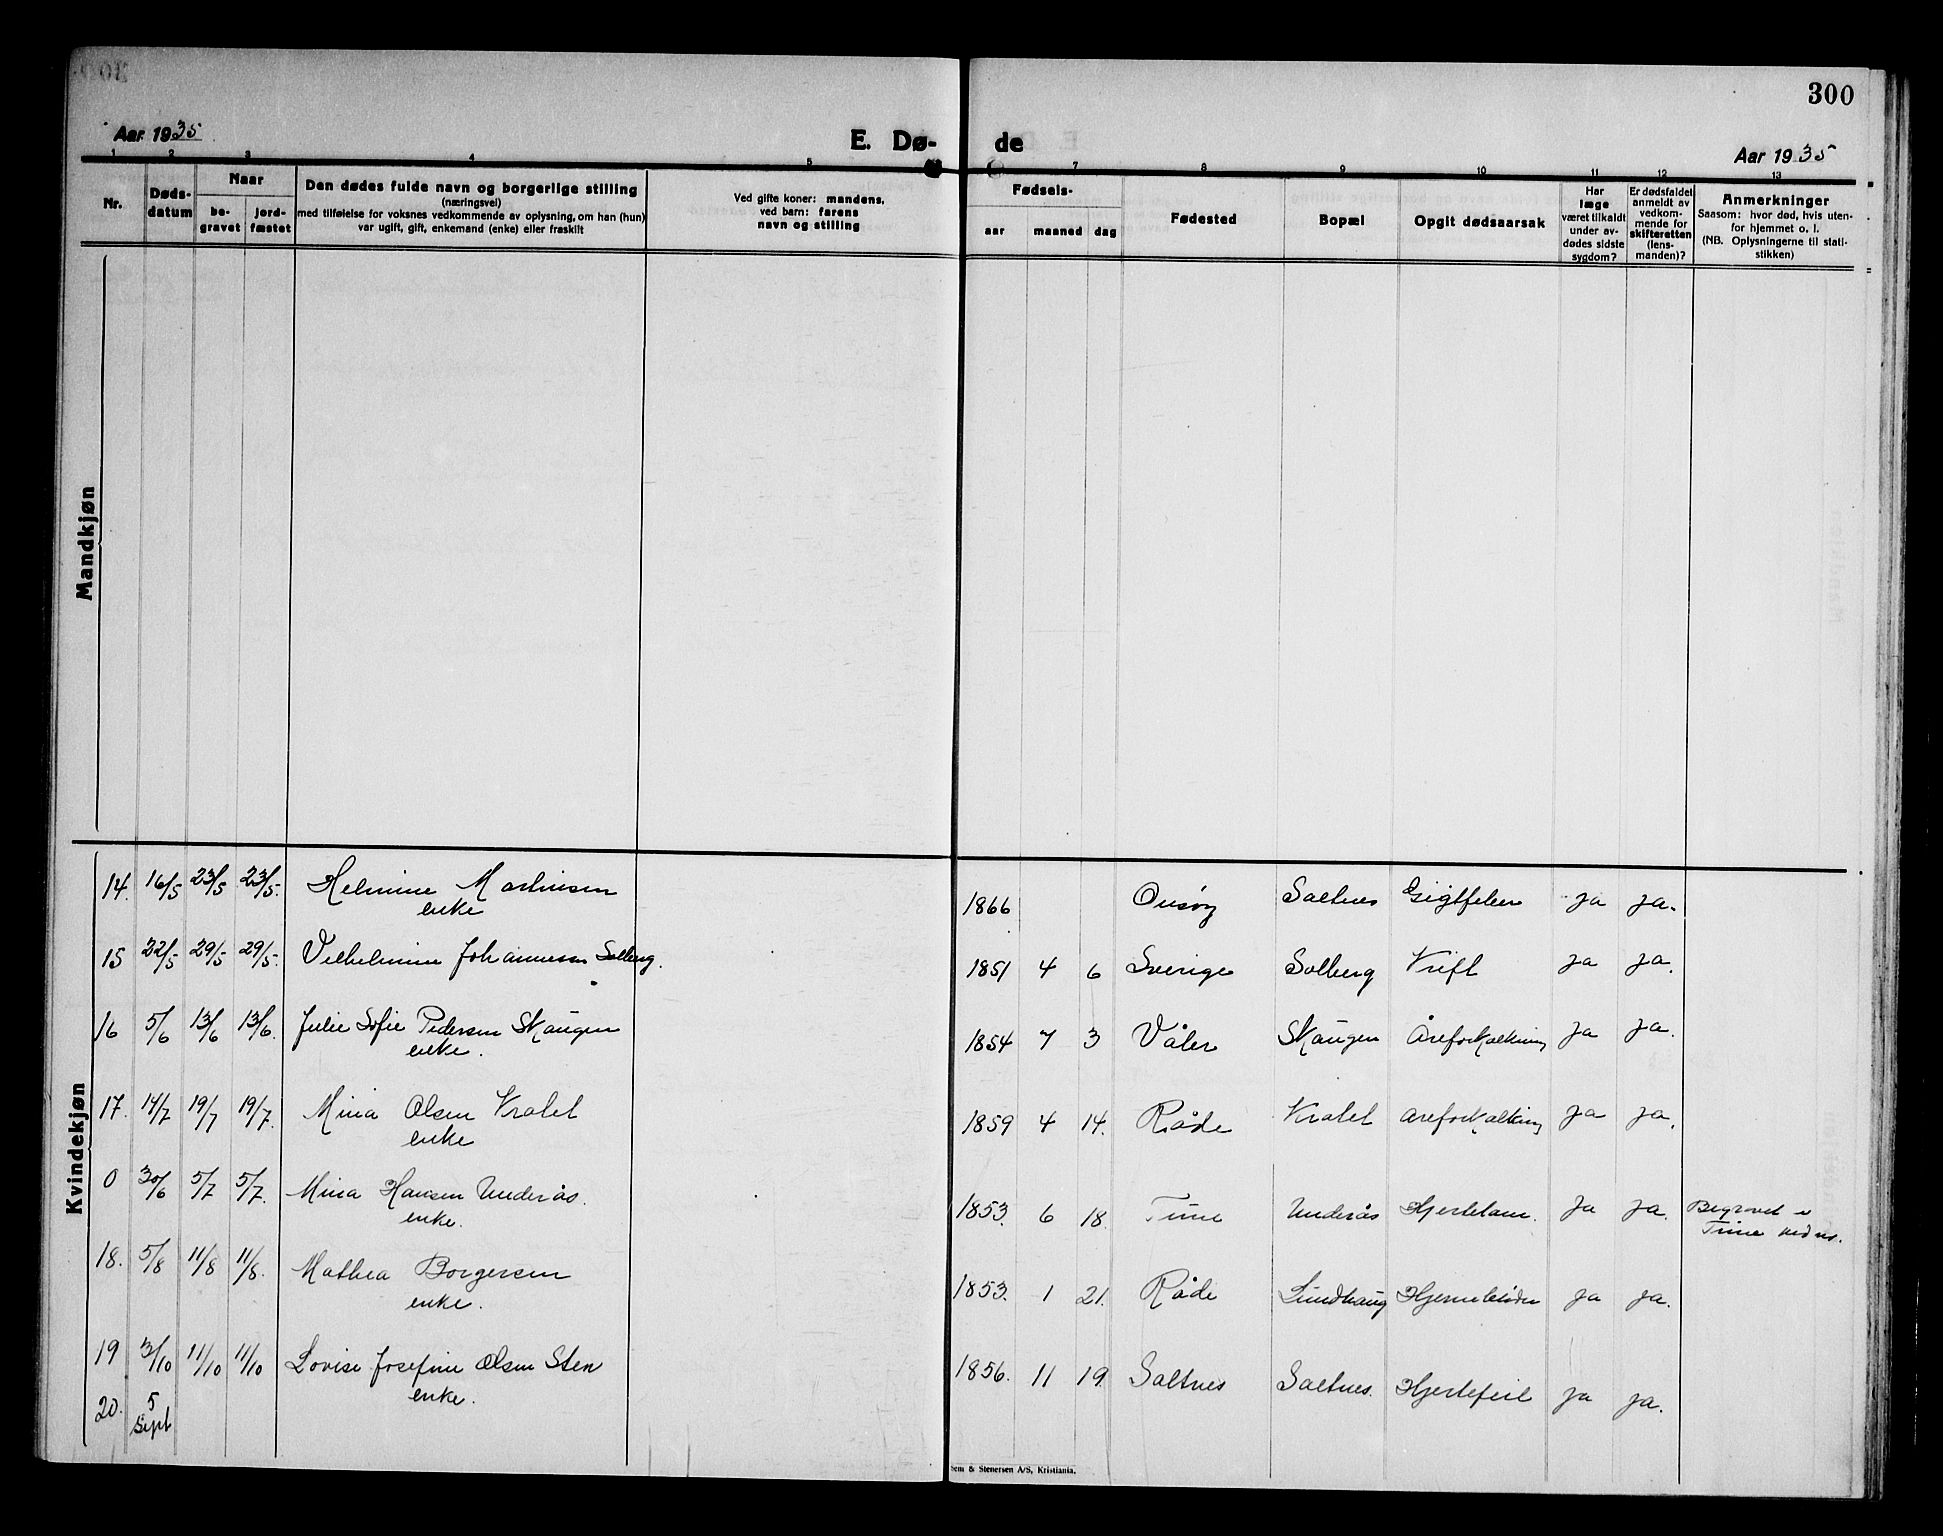 300
Aar 1935
E. Dø-
de
Aar 1935
1 2 3 4 5 7 8 9 10 11 12 13
Nr.
Døds-
datum
Naar
be-
gravet
jord-
fæstet
Den dødes fulde navn og borgerlige stilling
(næringsvei)
med tilføielse for voksnes vedkommende av oplysning, om han (hun)
var ugift, gift, enkemand (enke) eller fraskilt
Ved gifte koner: mandens,
ved barn: farens
navn og stilling
Fødsels-
aar maaned dag
Fødested
Bopæl
Opgit dødsaarsak
Har
læge
været tilkaldt
under av-
dødes sidste
sygdom?
Er dødsfaldet
anmeldt av
vedkom-
mende for
skifteretten
(lens-
manden)?
Anmerkninger
Saasom: hvor død, hvis uten-
for hjemmet o. l.
(NB. Oplysningerne til stati-
stikken)
Mandkjøn
Kvindekjøn
14. 16/5 23/5 23/5. Helmine Martinsen 1866 Onsøy Saltnes Gigtfeber ja ja.
enke
15 22/5 29/5 29/5. Vilhelmine Johannesen Solberg. 1851 4 6 Sverige Solberg Kreft ja ja.
16 5/6 13/6 13/6. Julie Sofie Pedersen Skaugen 1854 7 3 Våler Skaugen Åreforkalkning ja ja.
enke.
17. 14/7 19/7 19/7. Mina Olsen Kralet 1859 4 14. Råde Kralet Areforkalkning ja ja.
enke
0 30/6 5/7 5/7. Mina Hansen Underås. 1853. 6 18. Tune Underås Hjertelam. ja ja. Begravet i
enke. Tune
18. 5/8 11/8 11/8. Mathea Borgersen 1853. 1 21. Råde Lundhaug ja ja.
enke.
19 3/10 11/10 11/10 Lovise Josefine Olsen Sten 1856. 11 19. Saltnes Saltnes. Hjertefeil ja ja.
enke.
20. 5
Sept
Sem & Stenersen A/S, Kristiania.